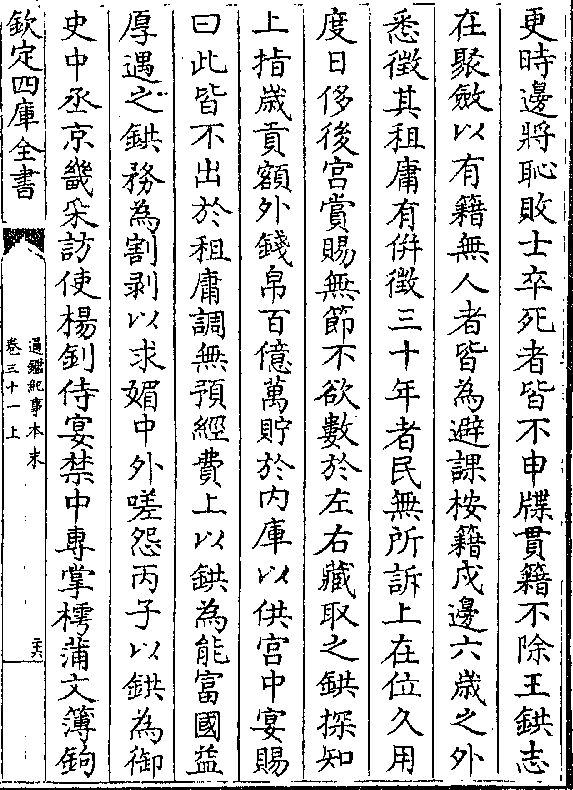 更時邊將恥敗士卒死者皆不申牒貫籍不除王鉷志
在聚斂以有籍無人者皆為避課桉籍戍邊六歲之外
悉徵其租庸有併徵三十年者民無所訴上在位久用
度日侈後宫賞賜無節不欲數於左右藏取之鉷探知
上指歲貢額外錢帛百億萬貯於内庫以供宫中宴賜
曰此皆不出於租庸調無預經費上以鉷為能富國益
厚遇之鉷務為割剥以求媚中外嗟怨丙子以鉷為御
史中丞京畿采訪使楊釗侍宴禁中專掌樗蒲文簿鉤
欽定四庫全書
通鑑紀事本末
卷三十一上
二六